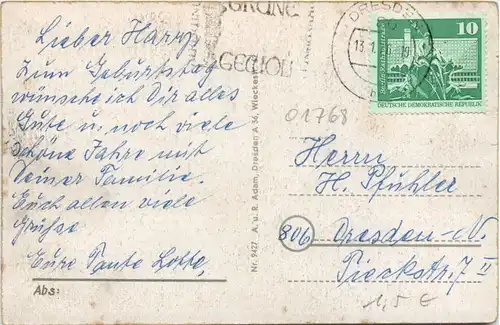 Lieber Harry
Zum Geburtstag
wünsche ich Dir alles
Gute u. noch viele
schöne Jahre mit
Deiner Familie.
Euch allen viele
Grüsse.
Eure Tante Lotte,
Abs:
Nr. 9427 A. u. R. Adam, Dresden A 36, Wieckestr.
DRESDEN
13.1.
10
DEUTSCHE DEMOKRATISCHE REPUBLIK
01768
Herrn
H. Pfühler
806 Dresden-N.
Pieckstr. 7 II
1,5 €